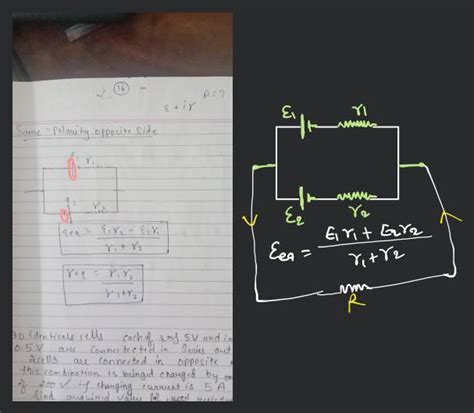 2. (16) -
ε + ir
A = ?
Same - Polarity opposite side
r1
r2
εeq = ε1r2 - ε2r1
r1 + r2
req = r1r2
r1+r2
20 identicals cells each of emf 5V and in
0.5 V are connectected in series out
2cells are connected in opposite
this combination is beingd charged by
of 200 V if charging current is 5 A
find
ε1
r1
ε2
r2
εeq = ε1r1 + ε2r2
r1 + r2
R